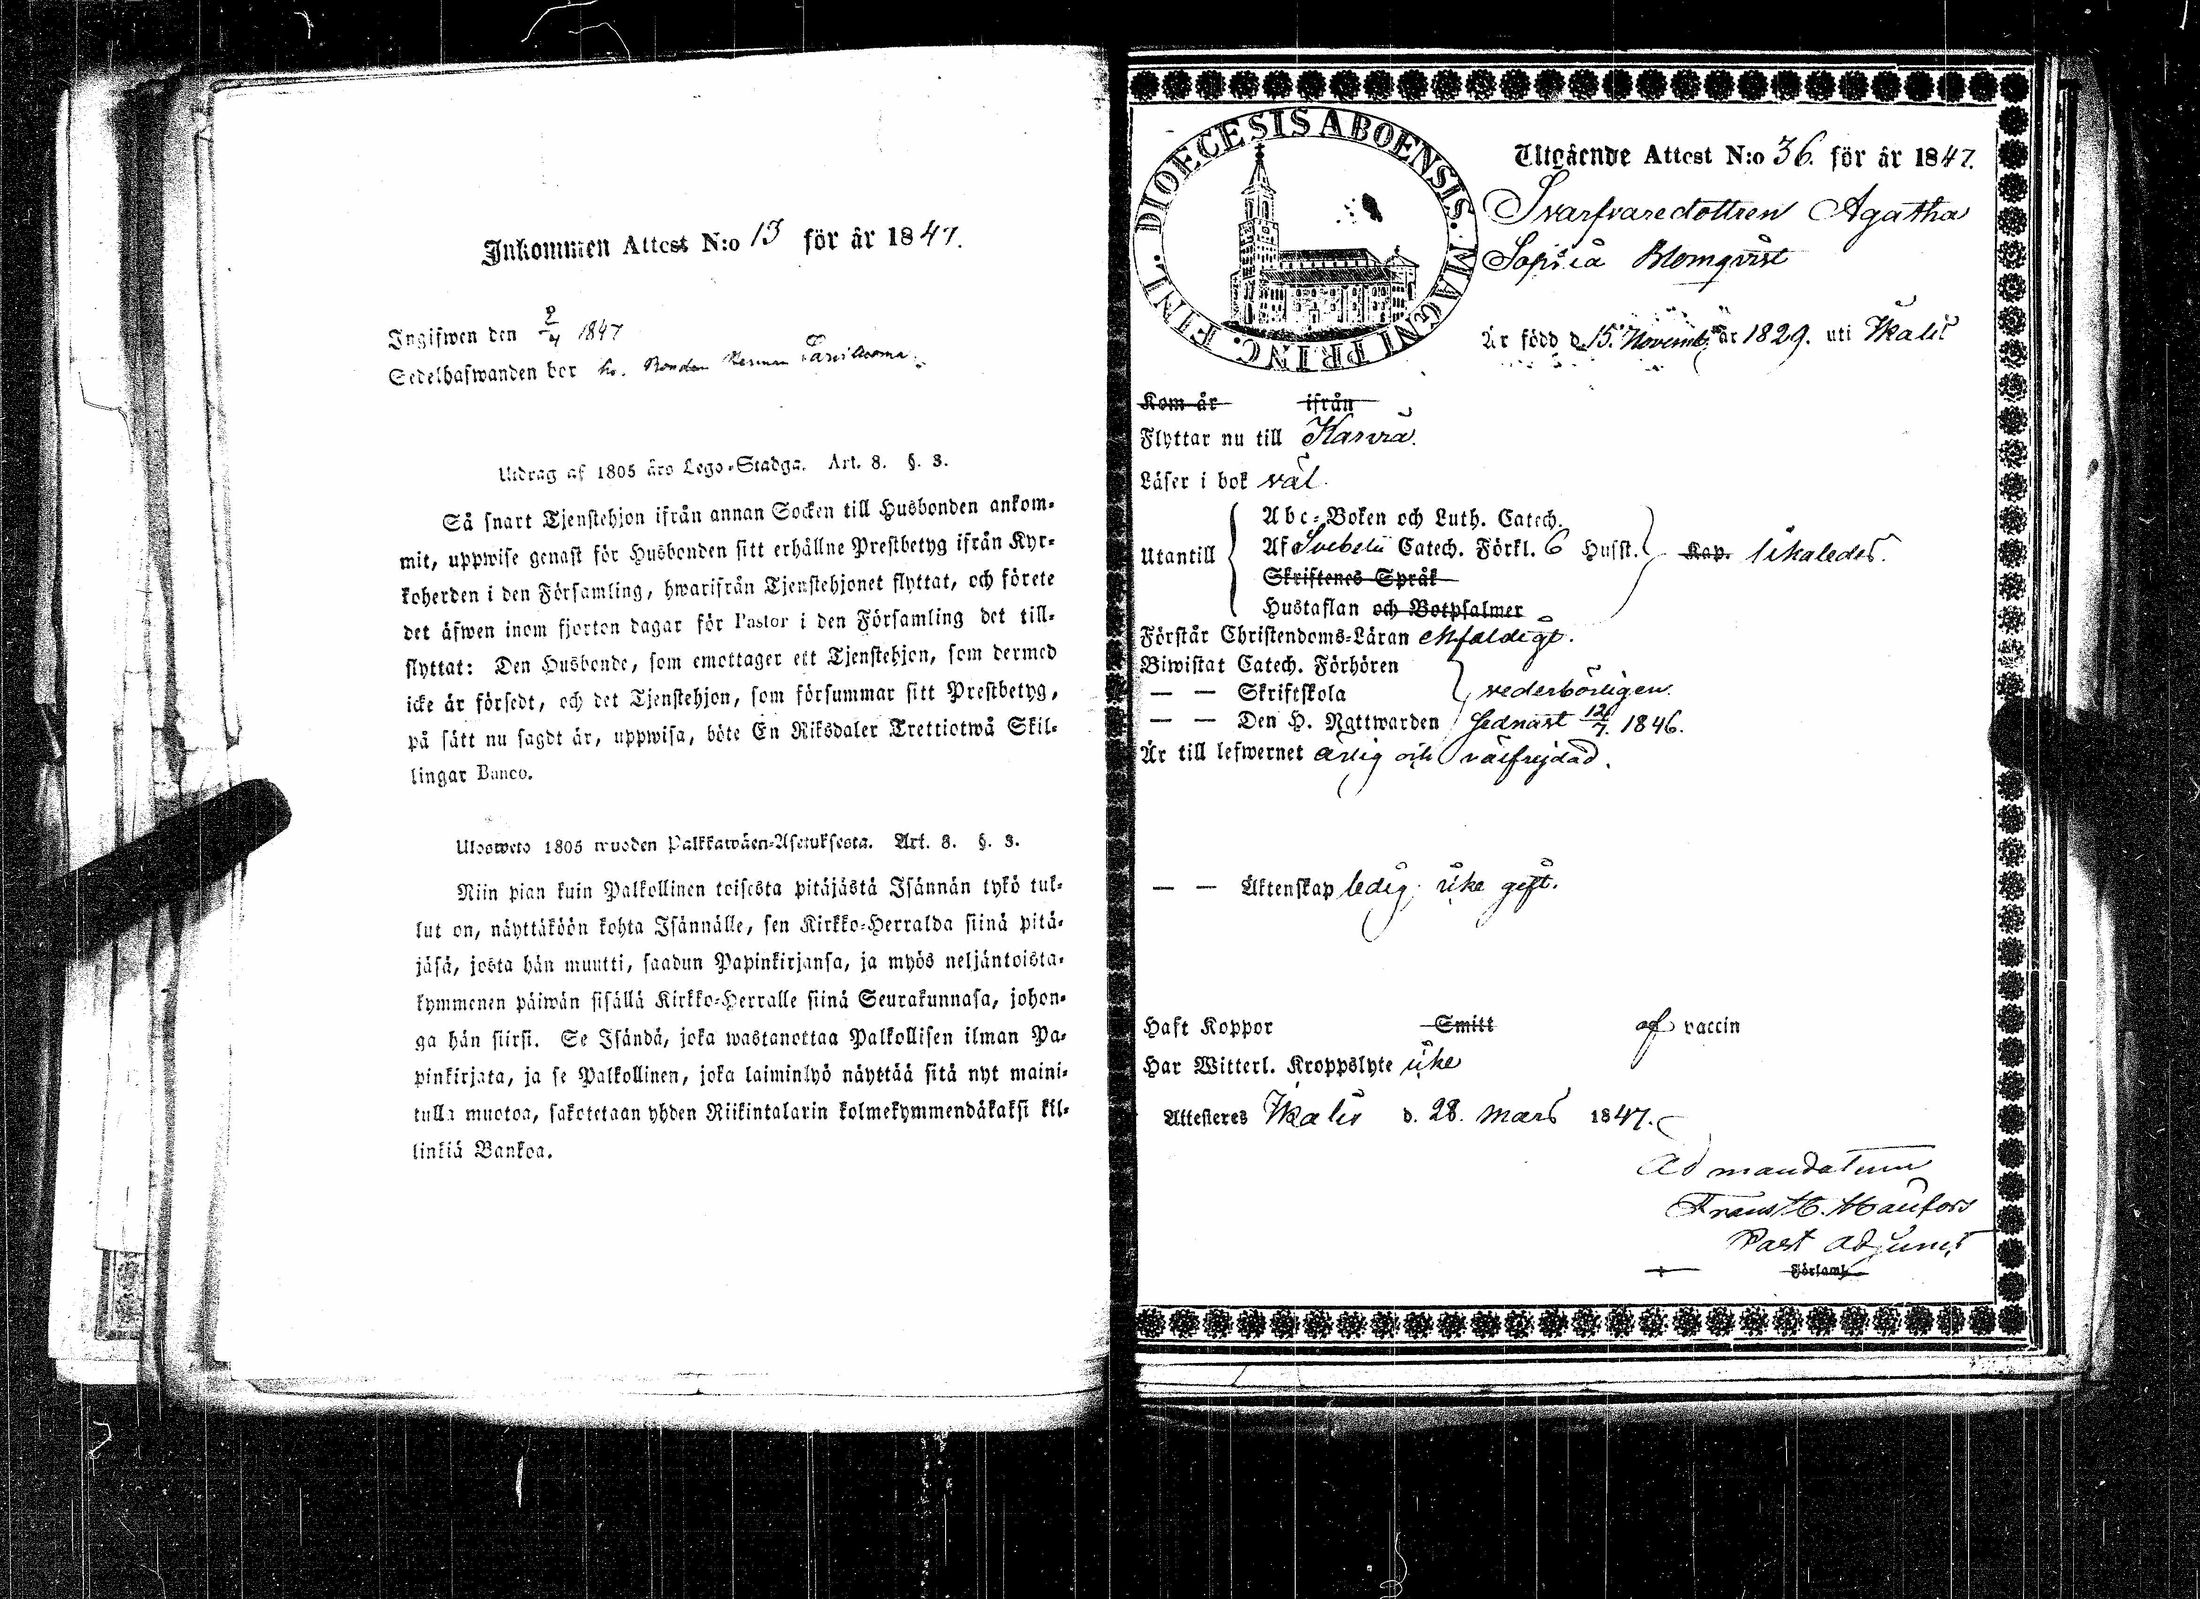 Inkommen Attest N:o 13 för år 1847.
Ingifwen den 2/4 1847
Sedelhafwanden bor hos Bonden Herman
Utdrag af 1805 års Lego-Stadga. Art. 8. §. 3.
Så snart Tjenstehjon ifrån annan Socken till Husbonden ankom-
mit, uppwise genast för Husbonden sitt erhållne Prestbetyg ifrån Kyr-
koherden i den Församling, hwarifrån Tjenstehjonet flyttat, och förete
det äfwen inom fjorton dagar för Pastor i den Församling det till-
flyttat: Den Husbonde, som emottager ett Tjenstehjon, som dermed
icke är försedt, och det Tjenstehjon, som försummar sitt Prestbetyg,
på sätt nu sagdt är, uppwisa, böte En Riksdaler Trettiotwå Skil-
lingar Banco.
Ulosweto 1805 wuoden Palkkawäen-Asetuksesta. Art. 8. §. 3.
Niin pian kuin Palkollinen toisesta pitäjästä Isännän tykö tul-
lut on, näyttäköön kohta Isännälle, sen Kirkko-Herralda siinä pitä-
jäsä, josta hän muutti, saadun Papinkirjansa, ja myös neljäntoista-
kymmenen päiwän sisällä Kirkko-Herralle siinä Seurakunnasa, johon-
ga hän siirsi. Se Isändä, joka wastanottaa Palkollisen ilman Pa-
pinkirjata, ja se Palkollinen, joka laiminlyö näyttää sitä nyt maini-
tulla muotoa, sakotetaan yhden Riikintalarin kolmekymmendäkaksi kil-
linkiä Bankoa.
DIOECESIS ABOENSIS. MAGNI PRINC. FINL.
Utgående Attest N:o 36. för år 1847.
Svarfvaredottren Agatha
Sophia Blomqvist
Är född d. 15. Novemb. år 1829. uti Ikalis
Kom år ifrån
Flyttar nu till Karvia.
Läser i bok väl.
Utantill
Abc-Boken och Luth. Catech.
Af Svebelii Catech. Förkl. 6 Hufst. Kap. likaledes.
Skriftenes Språk
Hustaflan och Botpsalmer
Förstår Christendoms-Läran enfaldigt.
Biwistat Catech. Förhören
— — Skriftskola vederbörligen.
— — Den H. Nattwarden sednast 12/7. 1846.
Är till lefwernet ärlig och välfrejdad.
— — Äktenskap ledig, icke gift.
Haft Koppor Smitt af vaccin
Har Witterl. Kroppslyte icke
Attesteres Ikalis d. 28. Mars 1847.
Ad mandatum
Frans H.
Past. adjunct
Församl.